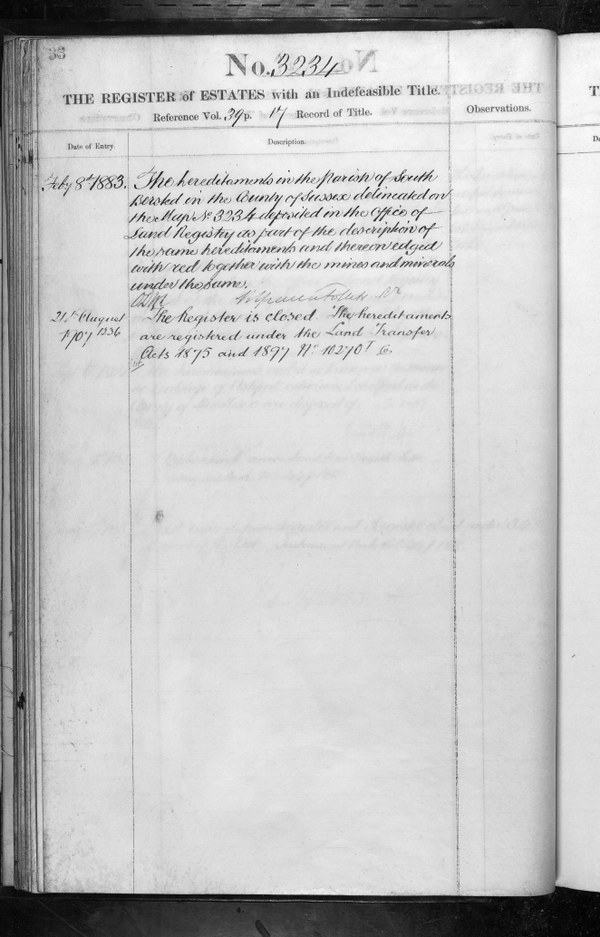 No. 3234
THE REGISTER of ESTATES with an Indefeasible Title.
Reference Vol. 39 p. 17 Record of Title.
Observations.
Date of Entry.
Description.
Feby 8th 1883.
The hereditaments in the Parish of South
Bersted in the County of Sussex delineated on
the Map No 3234 deposited in the Office of
Land Registry as part of the description of
the same hereditaments and thereon edged
with red together with the mines and minerals
under the same.
21st August
1907 1336
The Register is closed The hereditaments
are registered under the Land Transfer
Acts 1875 and 1897 No 10270